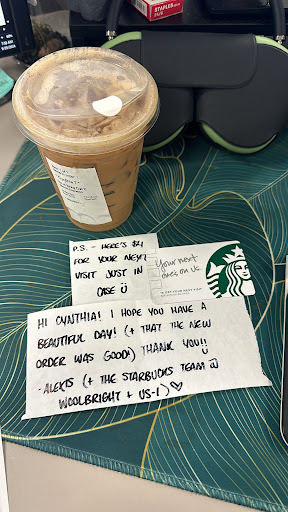 STAPLES
P.S. - HERE'S $4
FOR YOUR NEXT
VISIT JUST IN
CASE
Your next
one's on us
HI CYNTHIA! I HOPE YOU HAVE A
BEAUTIFUL DAY! (+ THAT THE NEW
ORDER WAS GOOD!) THANK YOU!!
-ALEXIS (+ THE STARBUCKS TEAM @
WOOLBRIGHT + US-1)